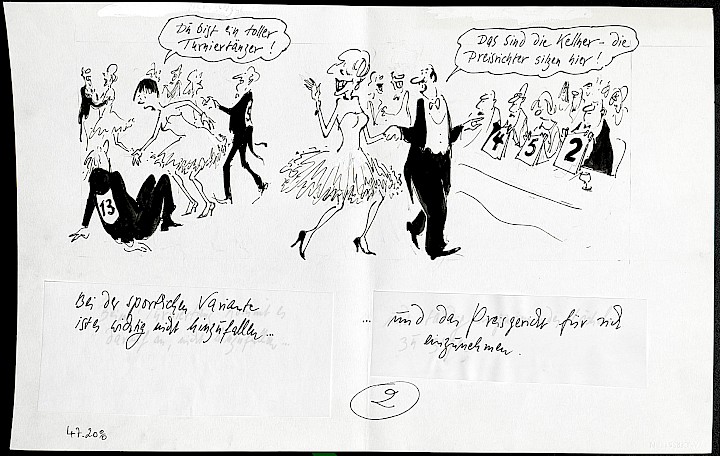 Du bist ein toller
Turniertänzer!
Das sind die Kellner - die
Preisrichter sitzen hier!
13
4
5
2
Bei der sportlichen Variante
ist es wichtig nicht hinzufallen...
... und das Preisgericht für sich
einzunehmen.
2